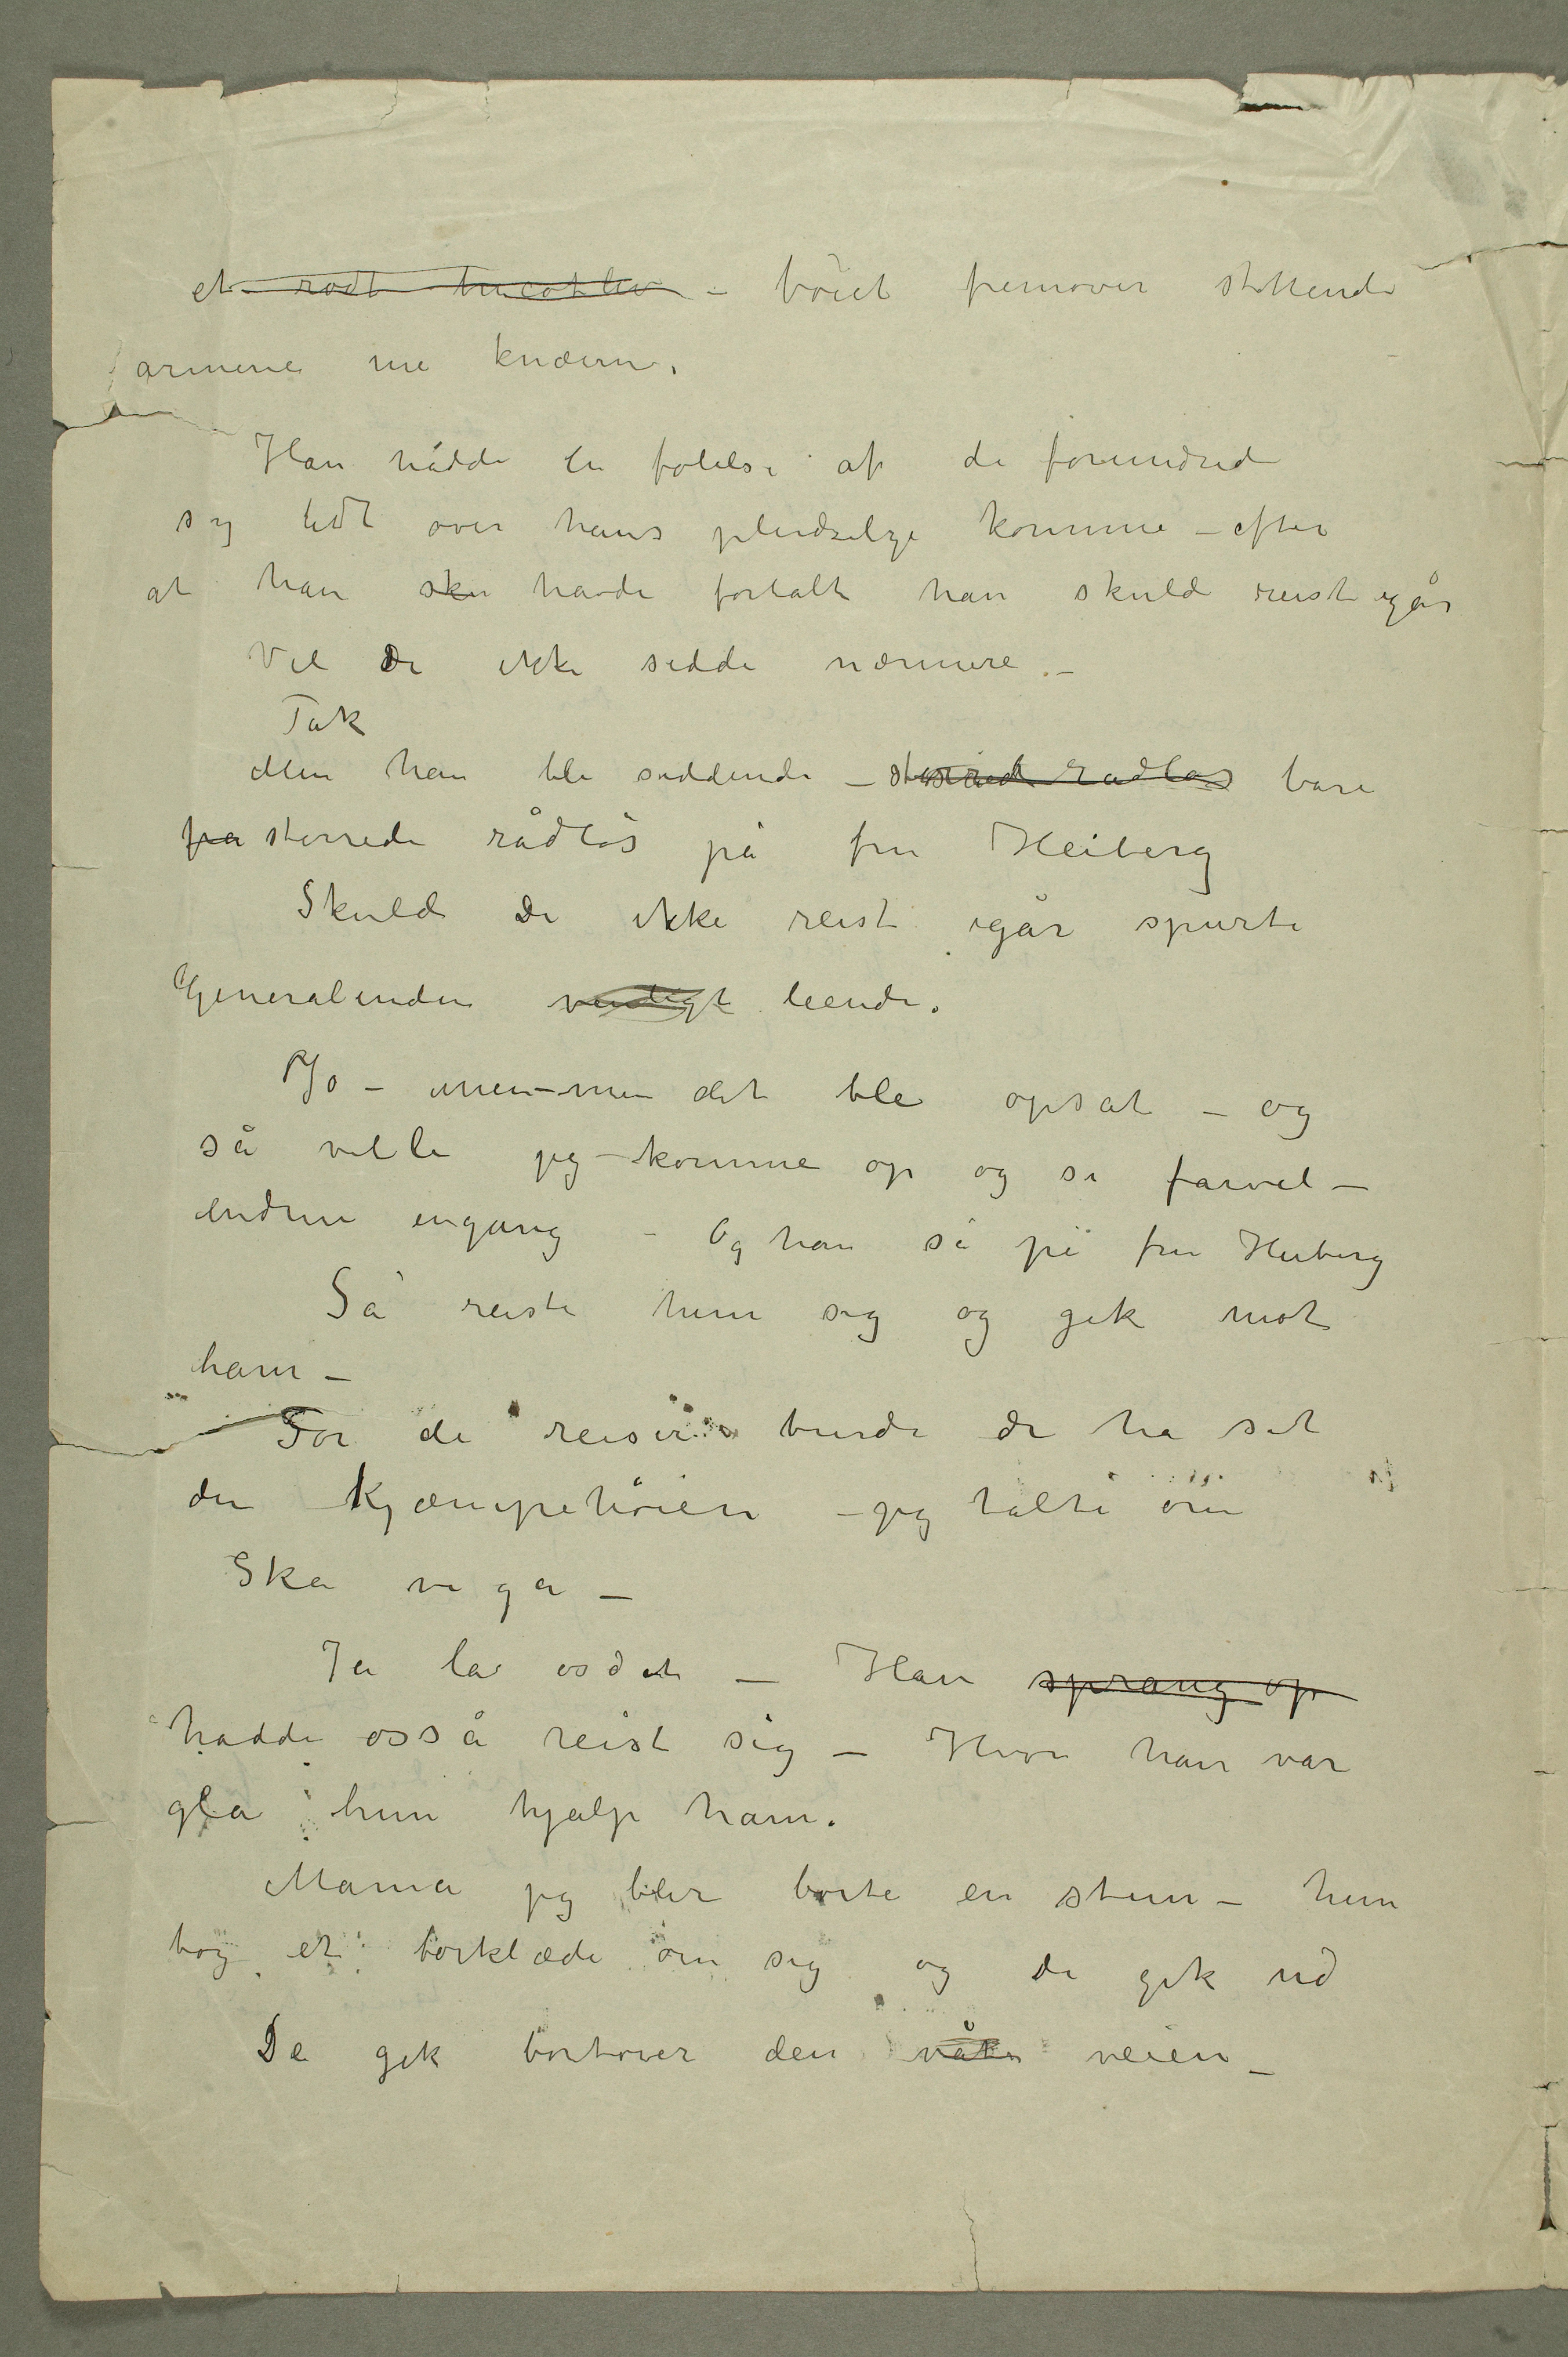 et rødt tricotliv – bøiet fremover støttende
armene me knæerne.
Han hadde en følelse af de forundred
sig lidt over hans pludselige komme – efter
at han sku havde fortalt han skulde reist igår
Vil De ikke sidde nærmere –
Tak
Men han ble siddende – stirred rådløs bare
fra stirrede rådløs på fru Heiberg
Skulde De ikke reist igår spurte
Generalinden venligt leende.
Jo – men – men det ble opsat – og
så vilde jeg komme op og si farvel –
endnu engang – Og han så på fru Heiberg
Så reiste hun sig og gik mot
ham –
Før de reiser burde de ha set
den Kjæmpehøien – jeg talte om
Ska vi gå –
Ja la osdet – Han sprang op
hadde osså reist sig – Hvor han var
gla hun hjalp ham.
Mama jeg blir borte en stun – hun
tog et tørklæde om sig og de gik ud
De gik bortover den våte veien –